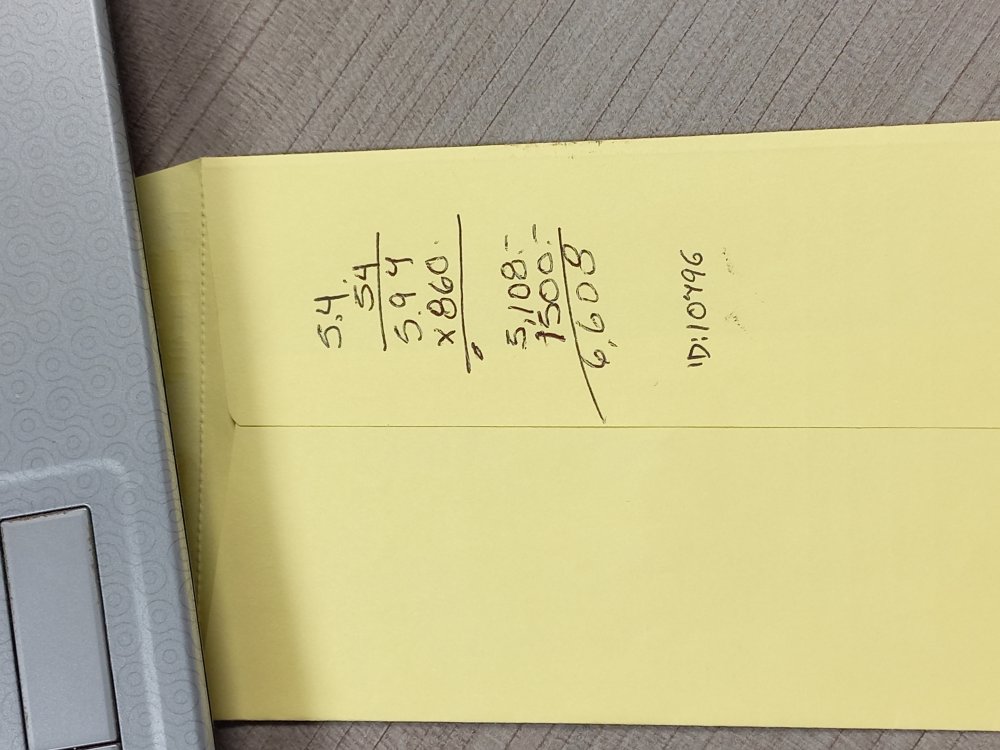 5.4
.54
5.94
×860.
5,108.=
1500.=
6,608
ID:10496